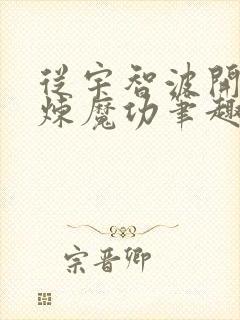 從宇智波開
煉魔功筆趣
宗晉卿